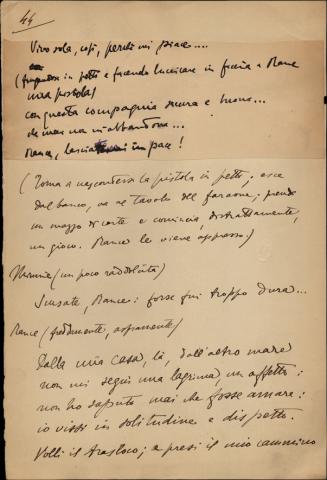 44
Vivo sola, così, perchè mi piace....
(frugandosi in petto e facendo luccicare in faccia a Rance
una pistola)
con questa compagnia sicura e buona...
che mai non m'abbandona...
Rance, lasciatemi in pace!
(Torna a nascondersi la pistola in petto; esce
dal banco, va al tavolo del faraone; prende
un mazzo di carte e comincia, distrattamente,
un gioco. Rance le viene appresso)
Minnie (un poco raddolcita)
Scusate, Rance: forse fui troppo dura...
Rance (freddamente, aspramente)
Dalla mia casa, là, dall'altro mare
non mi seguì una lagrima, un affetto:
non ho saputo mai che fosse amare:
io vissi in solitudine e dispetto.
Volli il distacco; e presi il mio cammino